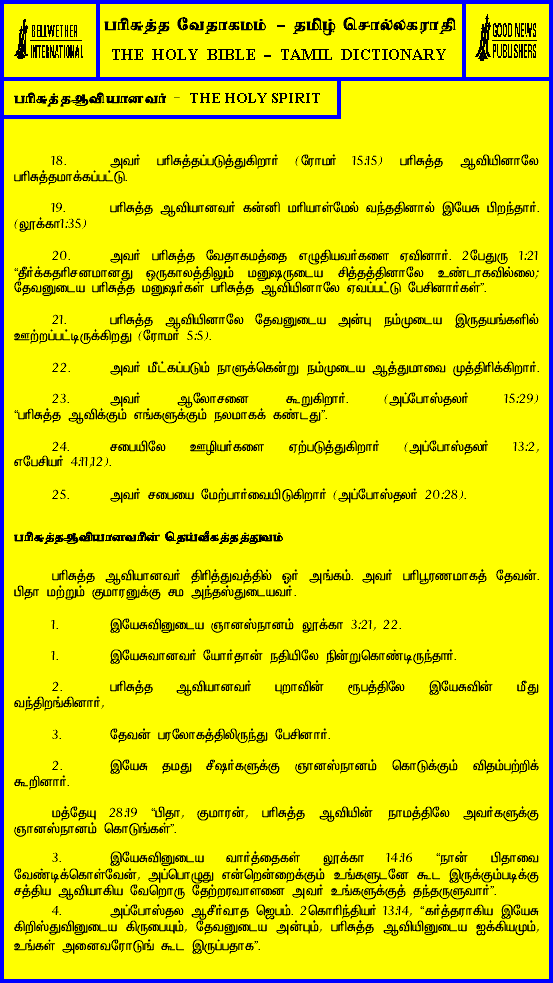 BELLWETHER
INTERNATIONAL
பரிசுத்த வேதாகமம் – தமிழ் சொல்லகராதி
THE HOLY BIBLE – TAMIL DICTIONARY
GOOD NEWS
PUBLISHERS
பரிசுத்தஆவியானவர் – THE HOLY SPIRIT
18. அவர் பரிசுத்தப்படுத்துகிறார் (ரோமர் 15:15) பரிசுத்த ஆவியினாலே
பரிசுத்தமாக்கப்பட்டு.
19. பரிசுத்த ஆவியானவர் கன்னி மரியாள்மேல் வந்ததினால் இயேசு பிறந்தார்.
(லூக்கா1:35)
20. அவர் பரிசுத்த வேதாகமத்தை எழுதியவர்களை ஏவினார். 2பேதுரு 1:21
“தீர்க்கதரிசனமானது ஒருகாலத்திலும் மனுஷருடைய சித்தத்தினாலே உண்டாகவில்லை;
தேவனுடைய பரிசுத்த மனுஷர்கள் பரிசுத்த ஆவியினாலே ஏவப்பட்டு பேசினார்கள்”.
21. பரிசுத்த ஆவியினாலே தேவனுடைய அன்பு நம்முடைய இருதயங்களில்
ஊற்றப்பட்டிருக்கிறது (ரோமர் 5:5).
22. அவர் மீட்கப்படும் நாளுக்கென்று நம்முடைய ஆத்துமாவை முத்திரிக்கிறார்.
23. அவர் ஆலோசனை கூறுகிறார். (அப்போஸ்தலர் 15:29)
“பரிசுத்த ஆவிக்கும் எங்களுக்கும் நலமாகக் கண்டது”.
24. சபையிலே ஊழியர்களை ஏற்படுத்துகிறார் (அப்போஸ்தலர் 13:2,
எபேசியர் 4:11,12).
25. அவர் சபையை மேற்பார்வையிடுகிறார் (அப்போஸ்தலர் 20:28).
பரிசுத்தஆவியானவரின் தெய்வீகத்தத்துவம்
பரிசுத்த ஆவியானவர் திரித்துவத்தில் ஓர் அங்கம். அவர் பரிபூரணமாகத் தேவன்.
பிதா மற்றும் குமாரனுக்கு சம அந்தஸ்துடையவர்.
1. இயேசுவினுடைய ஞானஸ்நானம் லூக்கா 3:21, 22.
1. இயேசுவானவர் யோர்தான் நதியிலே நின்றுகொண்டிருந்தார்.
2. பரிசுத்த ஆவியானவர் புறாவின் ரூபத்திலே இயேசுவின் மீது
வந்திறங்கினார்,
3. தேவன் பரலோகத்திலிருந்து பேசினார்.
2. இயேசு தமது சீஷர்களுக்கு ஞானஸ்நானம் கொடுக்கும் விதம்பற்றிக்
கூறினார்.
மத்தேயு 28:19 “பிதா, குமாரன், பரிசுத்த ஆவியின் நாமத்திலே அவர்களுக்கு
ஞானஸ்நானம் கொடுங்கள்”.
3. இயேசுவினுடைய வார்த்தைகள் லூக்கா 14:16 “நான் பிதாவை
வேண்டிக்கொள்வேன், அப்பொழுது என்றென்றைக்கும் உங்களுடனே கூட இருக்கும்படிக்கு
சத்திய ஆவியாகிய வேறொரு தேற்றரவாளனை அவர் உங்களுக்குத் தந்தருளுவார்”.
4. அப்போஸ்தல ஆசீர்வாத ஜெபம். 2கொரிந்தியர் 13:14, “கர்த்தராகிய இயேசு
கிறிஸ்துவினுடைய கிருபையும், தேவனுடைய அன்பும், பரிசுத்த ஆவியினுடைய ஐக்கியமும்,
உங்கள் அனைவரோடுங் கூட இருப்பதாக”.